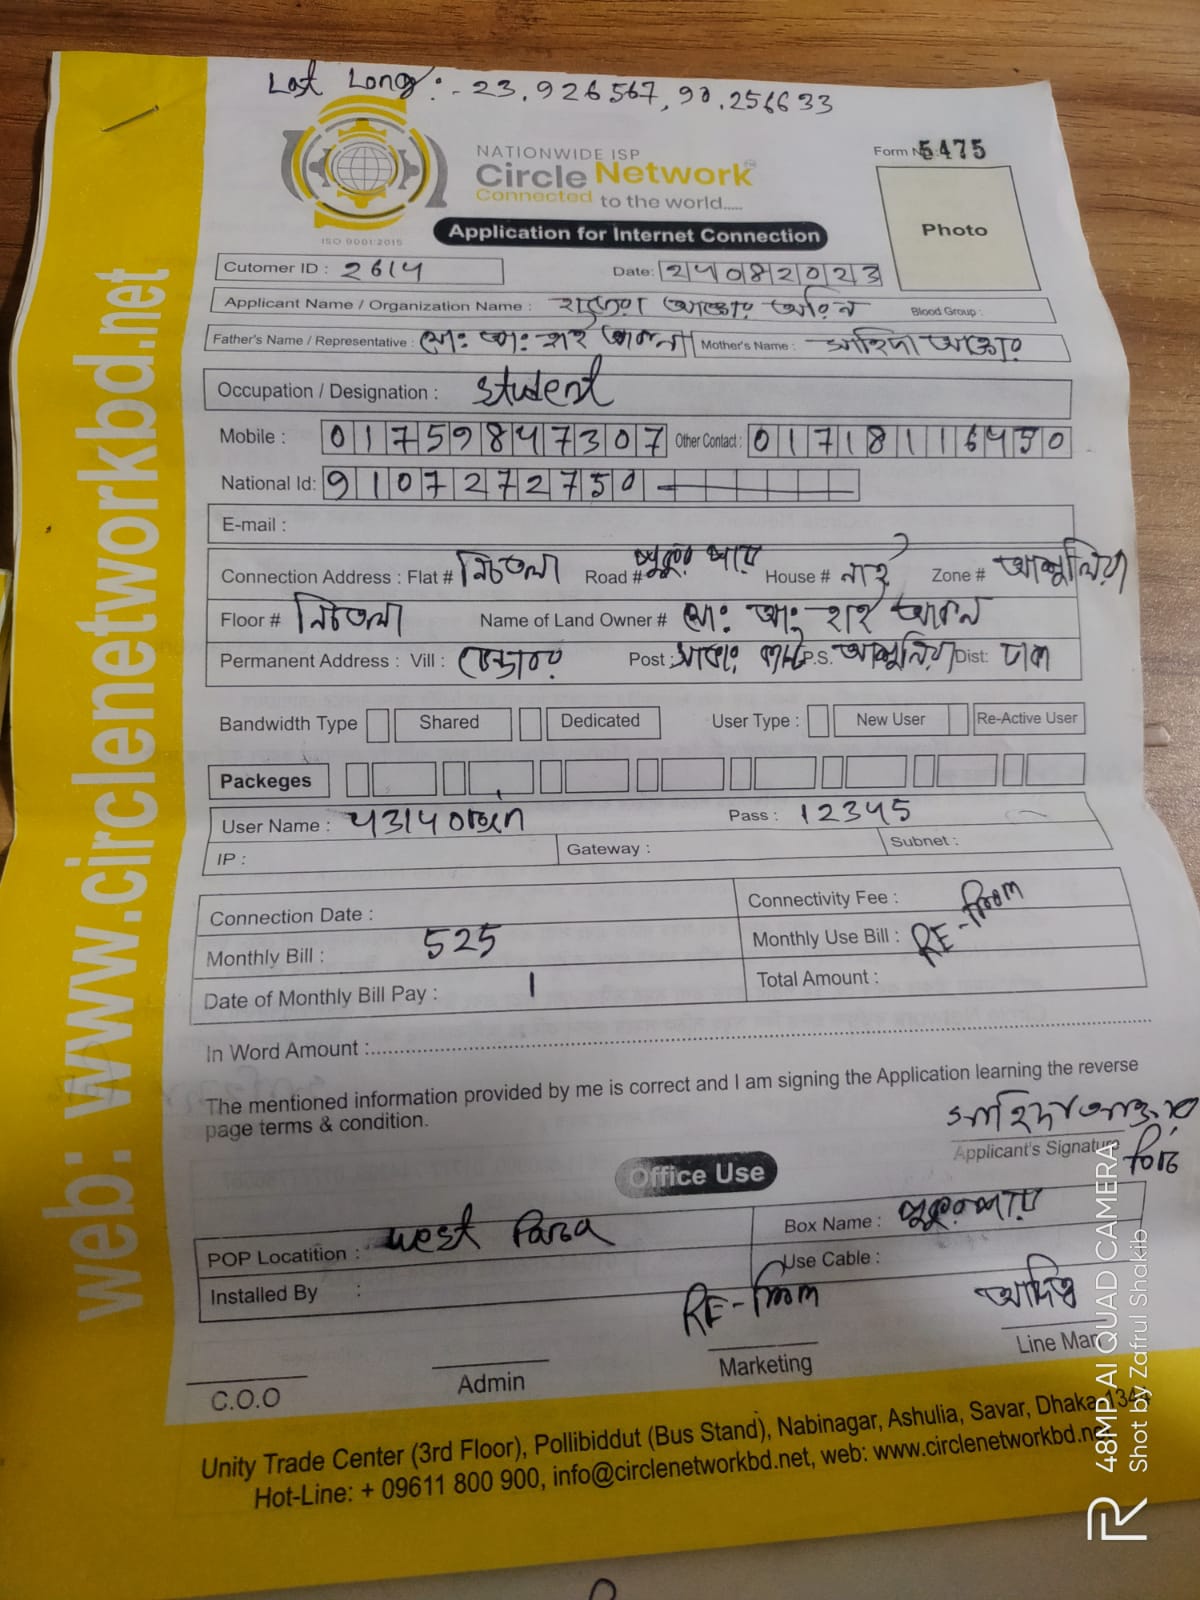 Lat Long: - 23.926567, 90.256633
NATIONWIDE ISP
Circle Network
Connected to the world.....
ISO 9001:2015
Form No 5475
Photo
Application for Internet Connection
Cutomer ID : 2614
Date: 24082023
Applicant Name / Organization Name : আক্তার
Blood Group :
Father's Name / Representative : মোঃ আঃ হাই
Mother's Name : সাহিদা আক্তার
Occupation / Designation : student
Mobile : 01759847307 Other Contact : 01718116450
National Id: 9107272750
E-mail :
Connection Address : Flat # নিচতলা Road # পুকুর পাড় House # নাই Zone # আশুলিয়া
Floor # নিচতলা Name of Land Owner # মোঃ আঃ হাই
Permanent Address : Vill : Post : P.S. আশুলিয়া Dist: ঢাকা
Bandwidth Type Shared Dedicated User Type : New User Re-Active User
Packeges
User Name : Pass : 12345
IP : Gateway : Subnet :
Connection Date : Connectivity Fee :
Monthly Bill : 525 Monthly Use Bill : RE-
Date of Monthly Bill Pay : 1 Total Amount :
In Word Amount :
The mentioned information provided by me is correct and I am signing the Application learning the reverse
page terms & condition.
সাহিদা আক্তার
Applicant's Signature
Office Use
POP Locatition : west Para Box Name : পুকুরপাড়
Installed By : Use Cable :
RE-
C.O.O Admin Marketing Line Man
Unity Trade Center (3rd Floor), Pollibiddut (Bus Stand), Nabinagar, Ashulia, Savar, Dhaka-1344
Hot-Line: + 09611 800 900, info@circlenetworkbd.net, web: www.circlenetworkbd.net
web: www.circlenetworkbd.net
48MP AI QUAD CAMERA
Shot by Zafrul Shakib